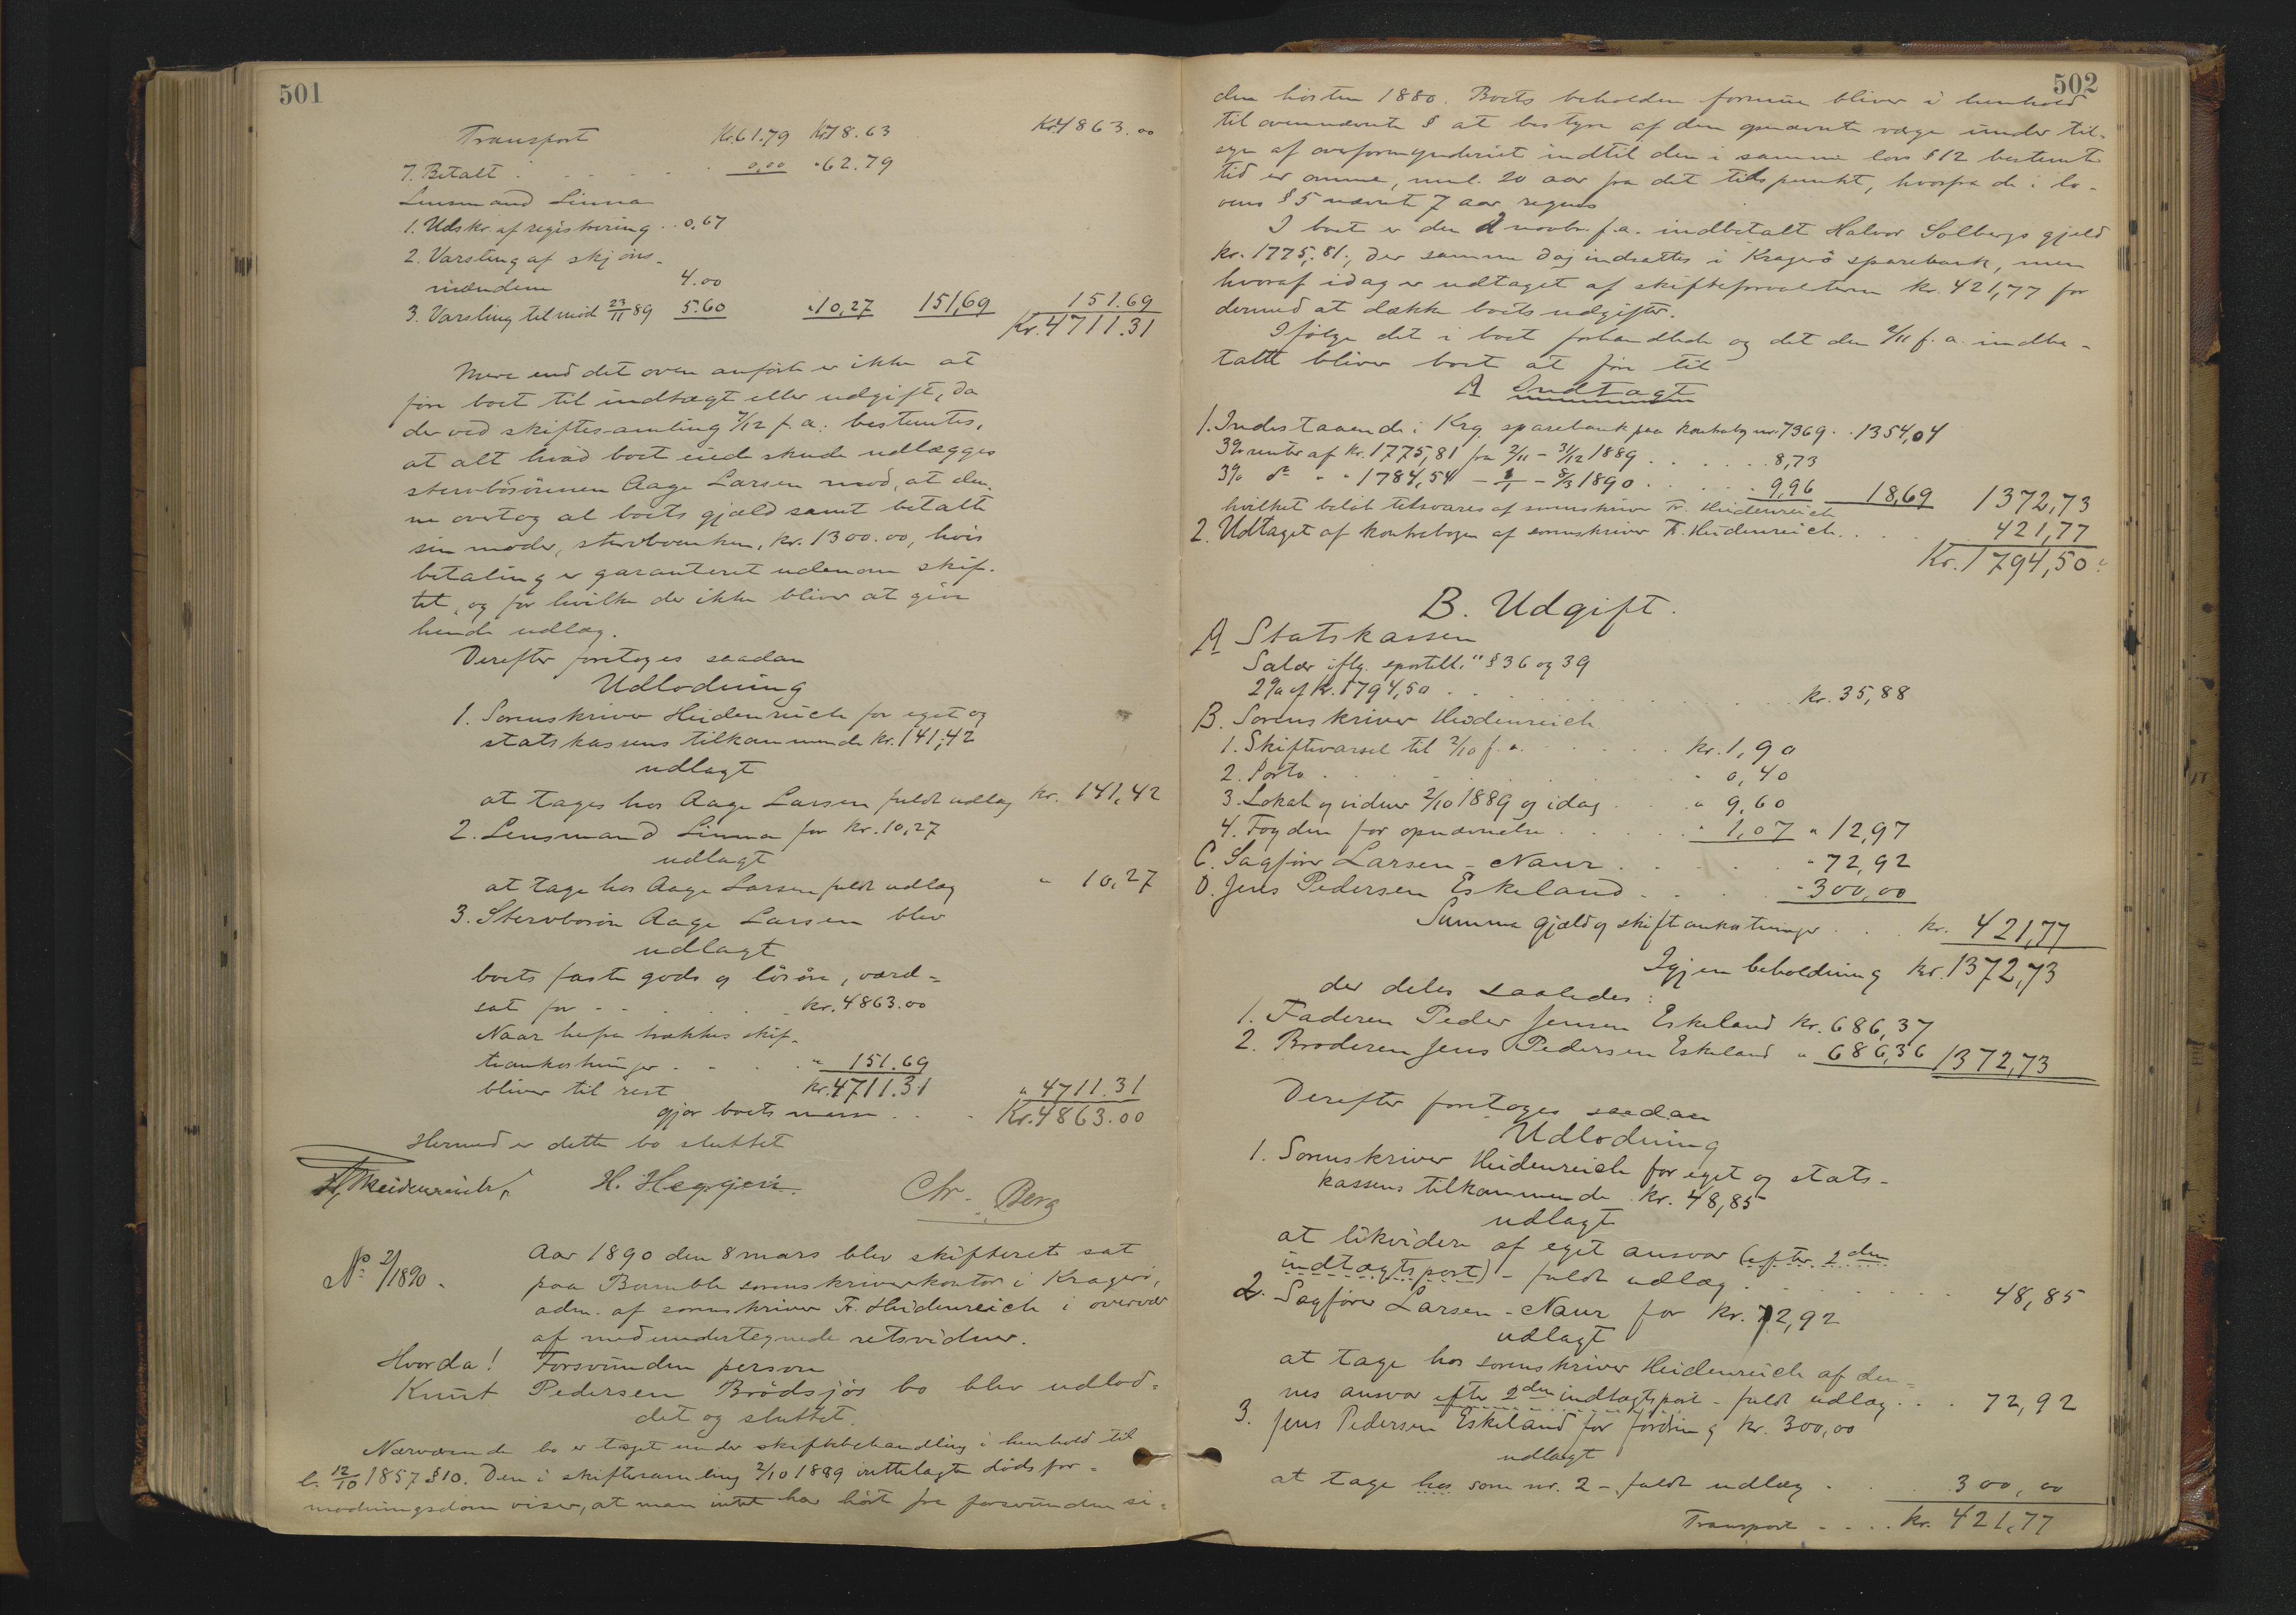 501
Transport Kr.61.79 Kr.78.63 Kr.4863.00
7. Betalt . . . . . 0,00 " 62.79
Lensmand Linna
1. Udskr. af registrering . . 0,67
2. Varsling af skjøns-
mændene 4.00
3. Varsling til mød 23/11 89 5.60 " 10,27 151,69 151.69
Kr. 4711.31
Mere end det oven anførte er ikke at
føre boet til indtægt eller udgift, da
der ved skiftesamling 7/12 f. a. bestemtes,
at alt hvad boet eiede skulde udlægges
stervbosønnen Aage Larsen mod, at den-
ne overtog al boets gjæld samt betalte
sin moder, stervboenken, kr. 1300.00, hvis
betaling er garanteret udenom skif-
tet, og for hvilke der ikke bliver at give
hende udlæg.
Derefter foretoges saadan
Udlodning
1. Sorenskriver Heidenreich for eget og
statskassens tilkommende kr. 141,42
udlagt
at tages hos Aage Larsen fuldt udlæg kr. 141,42
2. Lensmand Linna for kr. 10,27
udlagt
at tage hos Aage Larsen fuldt udlæg " 10,27
3. Stervbosøn Aage Larsen blev
udlagt
boets faste gods og løsøre, værd-
sat for - - . . . . kr. 4863.00
Naar herfra trækkes skif-
teomkostninger - . . . " 151.69
bliver til rest kr. 4711.31 " 4711.31
gjør boets masse . . . Kr. 4863.00
Hermed er dette bo sluttet
Fr. Heidenreich H. Heggen. Chr. Berg
No 2/1890. Aar 1890 den 8 mars blev skifteret sat
paa Bamble sorenskriverkontor i Kragerø,
adm. af sorenskriver Fr. Heidenreich i overvær
af medundertegnede retsvidner.
Hvorda! Forsvunden person
Knut Pedersen Brødsjøs bo blev udlod-
det og sluttet.
Nærværende bo er taget under skiftebehandling i henhold til
l. 12/10 1857 § 10. Den i skiftesamling 2/10 1889 irettelagte dødsfor-
modningsdom viser, at man intet har hørt fra forsvundne si-
502
den høsten 1880. Boets beholdne formue bliver i henhold
til ovennævnte § at bestyre af den opnævnte værge under til-
syn af overformynderiet indtil den i samme lovs § 12 bestemte
tid er omme, nml. 20 aar fra det tidspunkt, hvorfra de i lo-
vens § 5 nævnte 7 aar regnes
I boet er den 2 novbr. f. a. indbetalt Halvor Solbergs gjæld
kr. 1775,81, der samme dag indsattes i Kragerø sparebank, men
hvoraf idag er udtaget af skifteforvalteren kr. 421,77 for
dermed at dække boets udgifter.
Ifølge det i boet forhandlede og det den 2/11 f. a. indbe-
talte bliver boet at føre til
A Indtægt
1. Indestaaende i Krg. sparebank paa kontrabog nr. 7369 . . 1354,04
3% renter af kr. 1775,81 fra 2/11 - 31/12 1889 . . . . . . 8,73
3% do " " 1784,54 - 1/1 - 8/3 1890 . . . . . 9,96 18,69 1372,73
hvilket beløb tilsvares af sorenskriver Fr. Heidenreich
2. Udtaget af kontrabogen af sorenskriver Fr. Heidenreich . . . . 421,77
Kr. 1794,50
B. Udgift.
A Statskassen
Salær iflg. sportell." § 36 og 39
2% af kr. 1794,50 . . . . . . kr. 35,88
B. Sorenskriver Heidenreich
1. Skiftevarsel til 2/10 f. a. . . . . . kr. 1,90
2. Porto . . . . . . " 0,40
3. Lokale og vidner 2/10 1889 og idag . . . " 9,60
4. Fogden for opnævnelse . . . . " 1,07 " 12,97
C. Sagfører Larsen-Naur . . . . . " 72,92
D. Jens Pedersen Eskeland . . . . " 300,00
Summa gjæld og skifteomkostninger . . . kr. 421,77
Igjen beholdning kr. 1372,73
der deles saaledes:
1. Faderen Peder Jensen Eskeland kr. 686,37
2. Broderen Jens Pedersen Eskeland " 686,36 1372,73
Derefter foretoges saadan
Udlodning
1. Sorenskriver Heidenreich for eget og stats-
kassens tilkommende kr. 48,85
udlagt
at likvidere af eget ansvar (efter 2den
indtægtspost) - fuldt udlæg . . . . . . 48,85
2. Sagfører Larsen-Naur for kr. 72,92
udlagt
at tage hos sorenskriver Heidenreich af den-
nes ansvar efter 2den indtægtspost - fuldt udlæg . . . 72,92
3. Jens Pedersen Eskeland for fordring kr. 300,00
udlagt
at tage hos som nr. 2 - fuldt udlæg . . . 300,00
Transport - . . . kr. 421,77